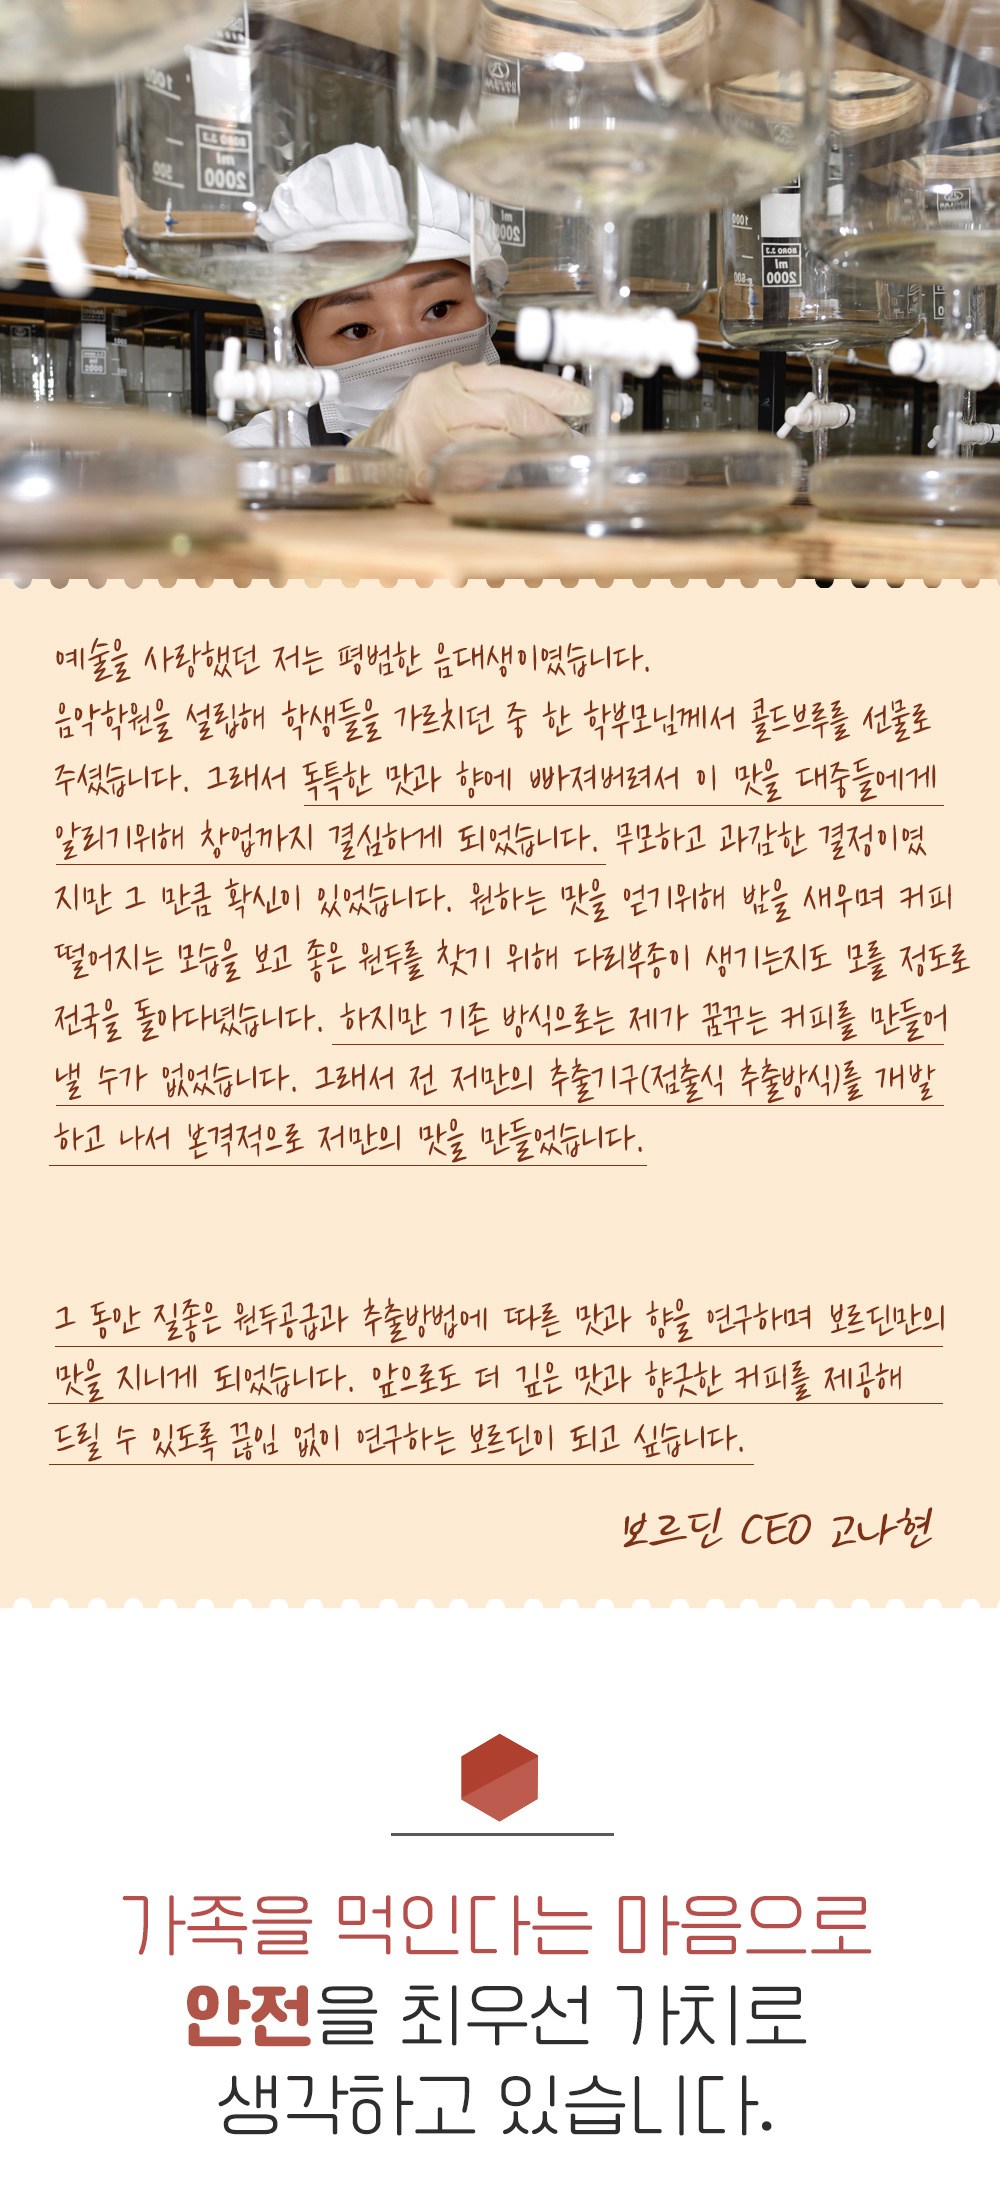 예술을 사랑했던 저는 평범한 음대생이였습니다.
음악학원을 설립해 학생들을 가르치던 중 한 학부모님께서 콜드브루를 선물로
주셨습니다. 그래서 독특한 맛과 향에 빠져버려서 이 맛을 대중들에게
알리기위해 창업까지 결심하게 되었습니다. 무모하고 과감한 결정이였
지만 그 만큼 확신이 있었습니다. 원하는 맛을 얻기위해 밤을 새우며 커피
떨어지는 모습을 보고 좋은 원두를 찾기 위해 다리부종이 생기는지도 모를 정도로
전국을 돌아다녔습니다. 하지만 기존 방식으로는 제가 꿈꾸는 커피를 만들어
낼 수가 없었습니다. 그래서 전 저만의 추출기구(점출식 추출방식)를 개발
하고 나서 본격적으로 저만의 맛을 만들었습니다.
그 동안 질좋은 원두공급과 추출방법에 따른 맛과 향을 연구하며 보르딘만의
맛을 지니게 되었습니다. 앞으로도 더 깊은 맛과 향긋한 커피를 제공해
드릴 수 있도록 끊임 없이 연구하는 보르딘이 되고 싶습니다.
보르딘 CEO 고나현
가족을 먹인다는 마음으로
안전을 최우선 가치로
생각하고 있습니다.